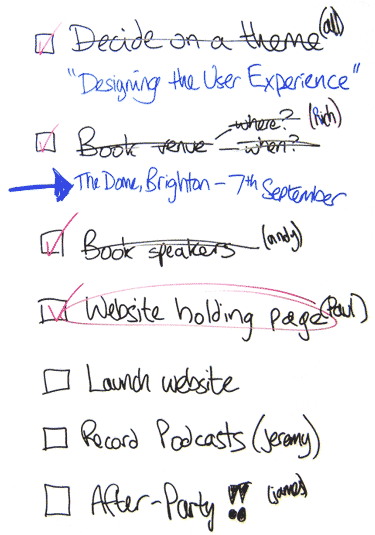 Decide on a theme (all)
"Designing the User Experience"
Book venue where? (Rich)
when?
The Dome, Brighton - 7th September
Book speakers (andy)
Website holding page (Paul)
Launch website
Record Podcasts (Jeremy)
After-Party !! (james)